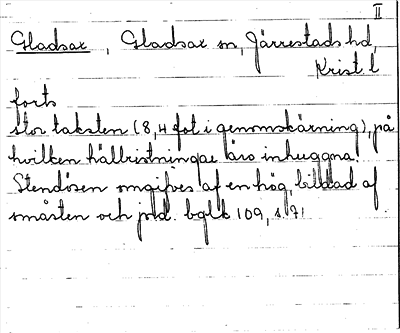 II
Gladsax, Gladsax sn, Järrestads hd,
Krist l
forts
stor taksten (8,4 fot i genomskärning), på
hvilken hällristningar äro inhuggna.
Stendösen omgifves af en hög, bildad af
småsten och jord. bglk 109, s. 71